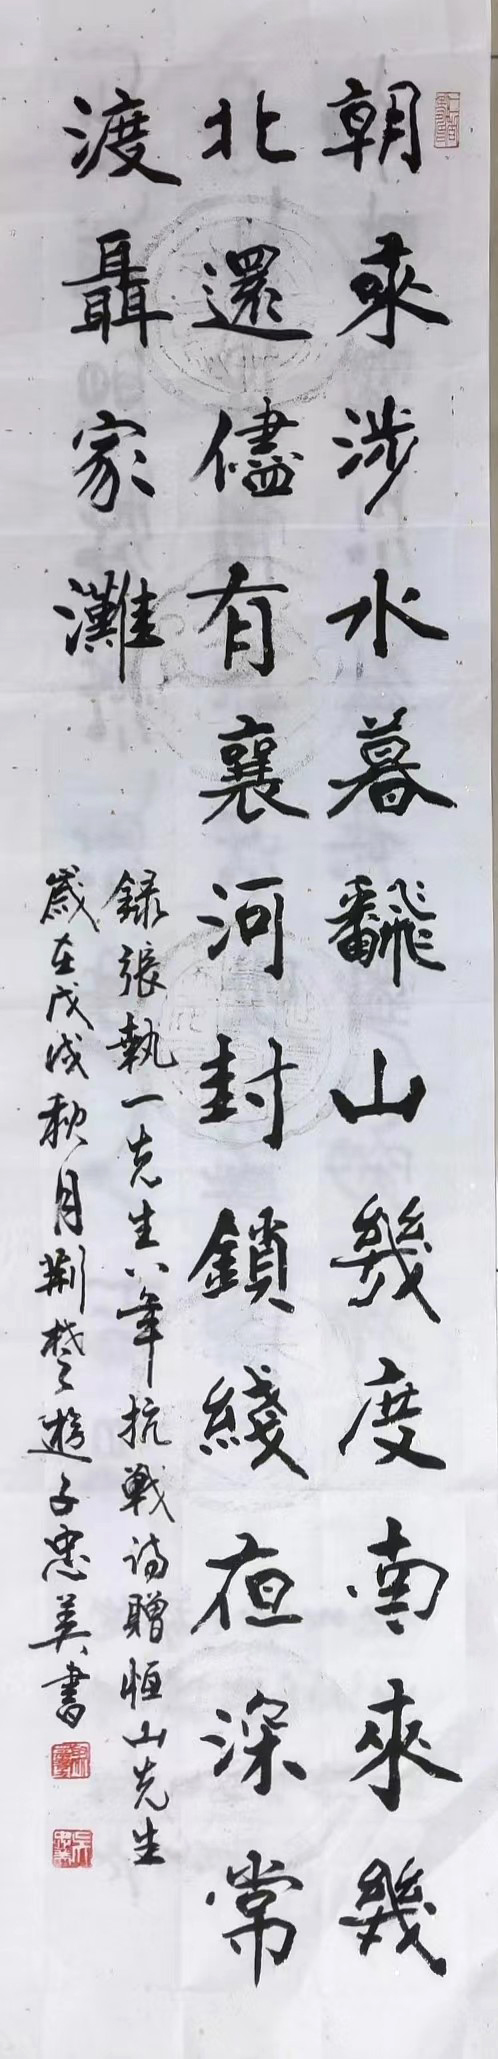 朝來涉水暮飜山幾度南來幾
北還儘有襄河封鎖綫夜深常
渡聶家灘
錄張執一先生八年抗戰詩贈恒山先生
歲在戊戌秋月荊楚遊子忠義書